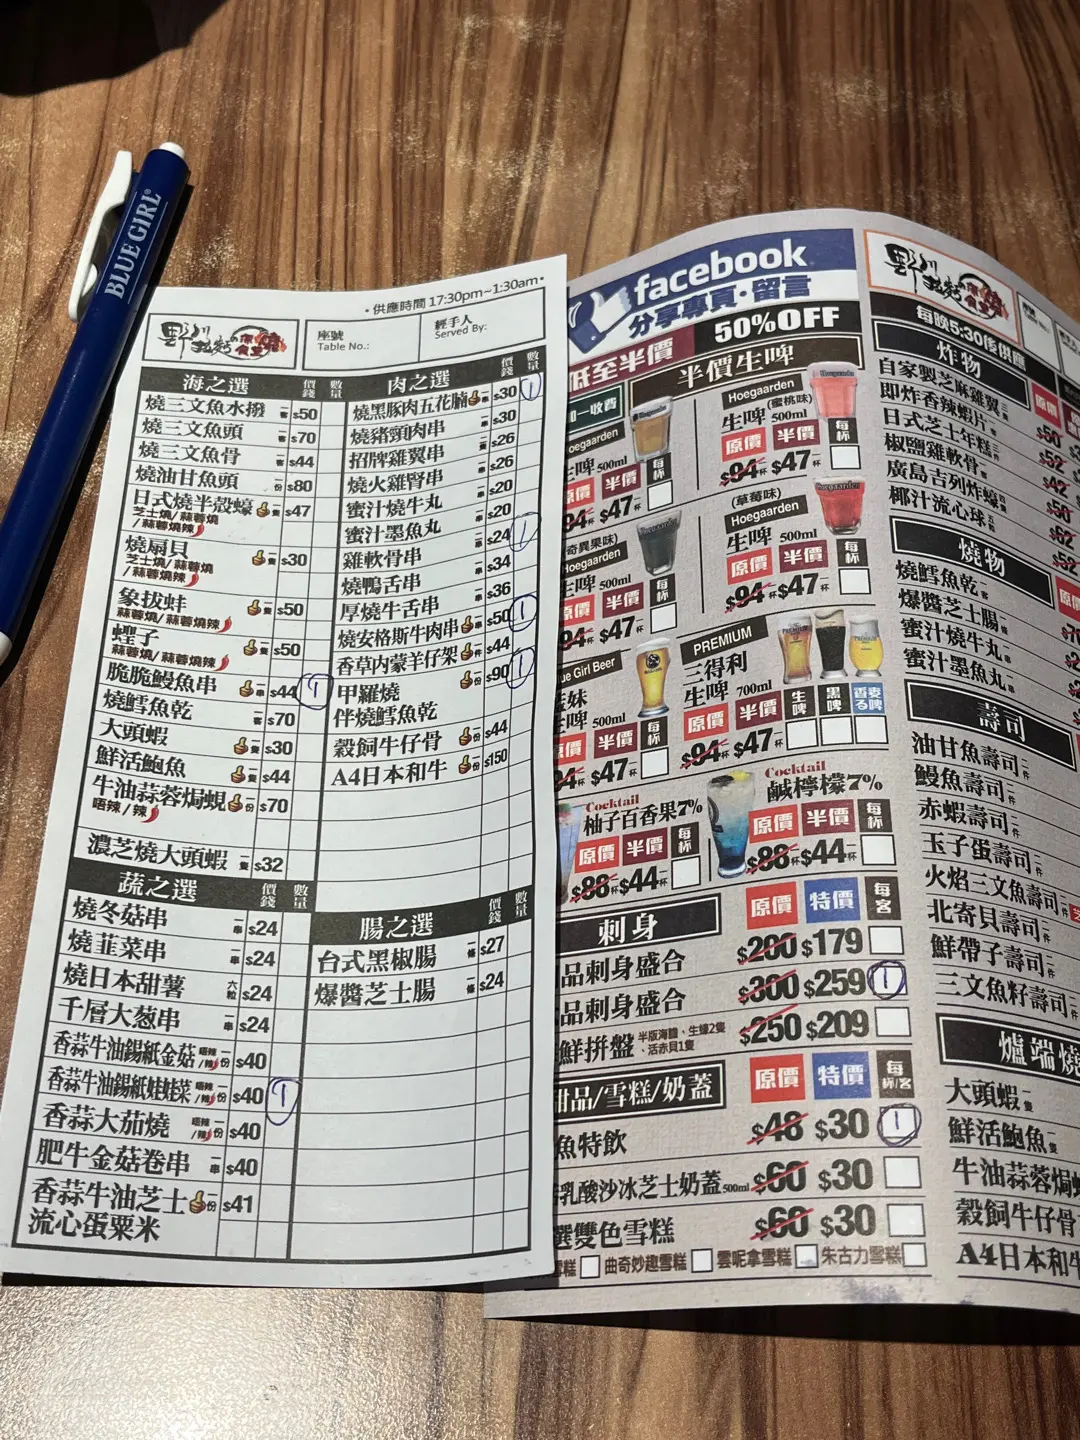 BLUE GIRL®
• 供應時間 17:30pm~1:30am •
野川
座號
Table No.:
經手人
Served By:
海之選 價錢 數量
燒三文魚水撥 一客 $50
燒三文魚頭 $70
燒三文魚骨 一客 $44
燒油甘魚頭 一份 $80
日式燒半殼蠔 一隻 $47
芝士燒/蒜蓉燒
/蒜蓉燒辣
燒扇貝 一隻 $30
芝士燒/蒜蓉燒
/蒜蓉燒辣
象拔蚌 一隻 $50
蒜蓉燒/蒜蓉燒辣
蟶子 一隻 $50
蒜蓉燒/蒜蓉燒辣
脆脆鰻魚串 一串 $44 1
燒鱈魚乾 一客 $70
大頭蝦 一隻 $30
鮮活鮑魚 一隻 $44
牛油蒜蓉焗蜆 一份 $70
唔辣/辣
濃芝燒大頭蝦 一隻 $32
蔬之選 價錢 數量
燒冬菇串 一串 $24
燒韮菜串 一串 $24
燒日本甜薯 六粒 $24
千層大葱串 一串 $24
香蒜牛油錫紙金菇 唔辣/辣 一份 $40
香蒜牛油錫紙娃娃菜 唔辣/辣 一份 $40 1
香蒜大茄燒 唔辣/辣 一份 $40
肥牛金菇卷串 一串 $40
香蒜牛油芝士 一份 $41
流心蛋粟米
肉之選 價錢 數量
燒黑豚肉五花腩 一串 $30 1
燒豬頸肉串 一串 $30
招牌雞翼串 一隻 $26
燒火雞腎串 一串 $26
蜜汁燒牛丸 一串 $20
蜜汁墨魚丸 一串 $20
雞軟骨串 一串 $24 1
燒鴨舌串 一串 $34
厚燒牛舌串 一串 $36
燒安格斯牛肉串 一串 $50 1
香草內蒙羊仔架 一件 $44
甲羅燒 一份 $90 1
伴燒鱈魚乾
穀飼牛仔骨 一份 $44
A4日本和牛 一份 $150
腸之選 價錢 數量
台式黑椒腸 一條 $27
爆醬芝士腸 一條 $24
facebook
分享專頁·留言
低至半價 50%OFF
一收費 半價生啤
Hoegaarden
生啤 500ml
原價 半價 每杯
$94杯 $47杯
Hoegaarden (蜜桃味)
生啤 500ml
原價 半價 每杯
$94杯 $47杯
奇異果味)
Hoegaarden
生啤 500ml
原價 半價 每杯
$94杯 $47杯
(草莓味)
Hoegaarden
生啤 500ml
原價 半價 每杯
$94杯 $47杯
ue Girl Beer
妹
啤 500ml
原價 半價 每杯
$94杯 $47杯
PREMIUM
三得利
生啤 700ml 生啤 黑啤 香麥る啤
原價 半價
$94杯 $47杯
Cocktail
柚子百香果7%
原價 半價 每杯
$88杯 $44杯
Cocktail
鹹檸檬7%
原價 半價 每杯
$88杯 $44杯
刺身 原價 特價 每客
品刺身盛合 $200 $179
品刺身盛合 $300 $259 1
鮮拼盤 半版海膽、生蠔2隻、活赤貝1隻 $250 $209
甜品/雪糕/奶蓋 原價 特價 每杯/客
魚特飲 $48 $30 1
乳酸沙冰芝士奶蓋 500ml $60 $30
選雙色雪糕 $60 $30
雪糕 曲奇妙趣雪糕 雲呢拿雪糕 朱古力雪糕
野川
每晚5:30後供應
炸物 原價
自家製芝麻雞翼 三隻 $50
即炸香辣蝦片 $52
日式芝士年糕 三件 $42
椒鹽雞軟骨 $50
廣島吉列炸蠔 四隻 $62
椰汁流心球 五粒 $52
燒物 原價
燒鱈魚乾 一客
爆醬芝士腸 一條
蜜汁燒牛丸 一串
蜜汁墨魚丸 一串
壽司
油甘魚壽司 二件
鰻魚壽司 二件
赤蝦壽司 二件
玉子蛋壽司 二件
火焰三文魚壽司 二件
北寄貝壽司 二件
鮮帶子壽司 二件
三文魚籽壽司 二件
爐端燒
大頭蝦 一隻
鮮活鮑魚 一隻
牛油蒜蓉焗
穀飼牛仔骨
A4日本和牛